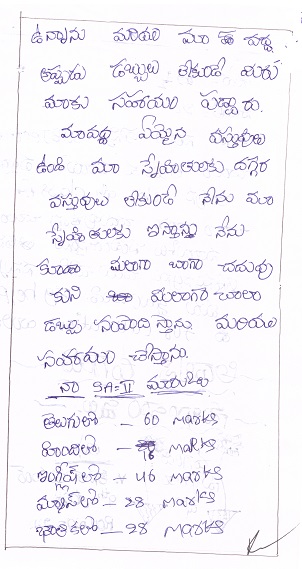 ఉన్నాను మరియు మా వద్ద
అప్పుడు డబ్బులు లేకుండే మీరు
మాకు సహాయం పడ్డారు.
మావద్ద ఏమైన వస్తువులు
ఉండి మా స్నేహితులకు దగ్గెర
వస్తువులు లేకుండే నేను మా
స్నేహితులకు ఇస్తాను నేను
కూడా మీలాగా బాగా చదువు
కుని మీలాగా చాలా
డబ్బు సంపాదిస్తాను మరియు
సహాయం చేస్తాను.
నా SA-II మారుకులు
తెలుగులో - 60 marks
హిందిలో - marks
ఇంగ్లీష్‌లో - 46 marks
మ్యాథ్స్‌లో - 28 marks
భౌతికలో - 28 marks